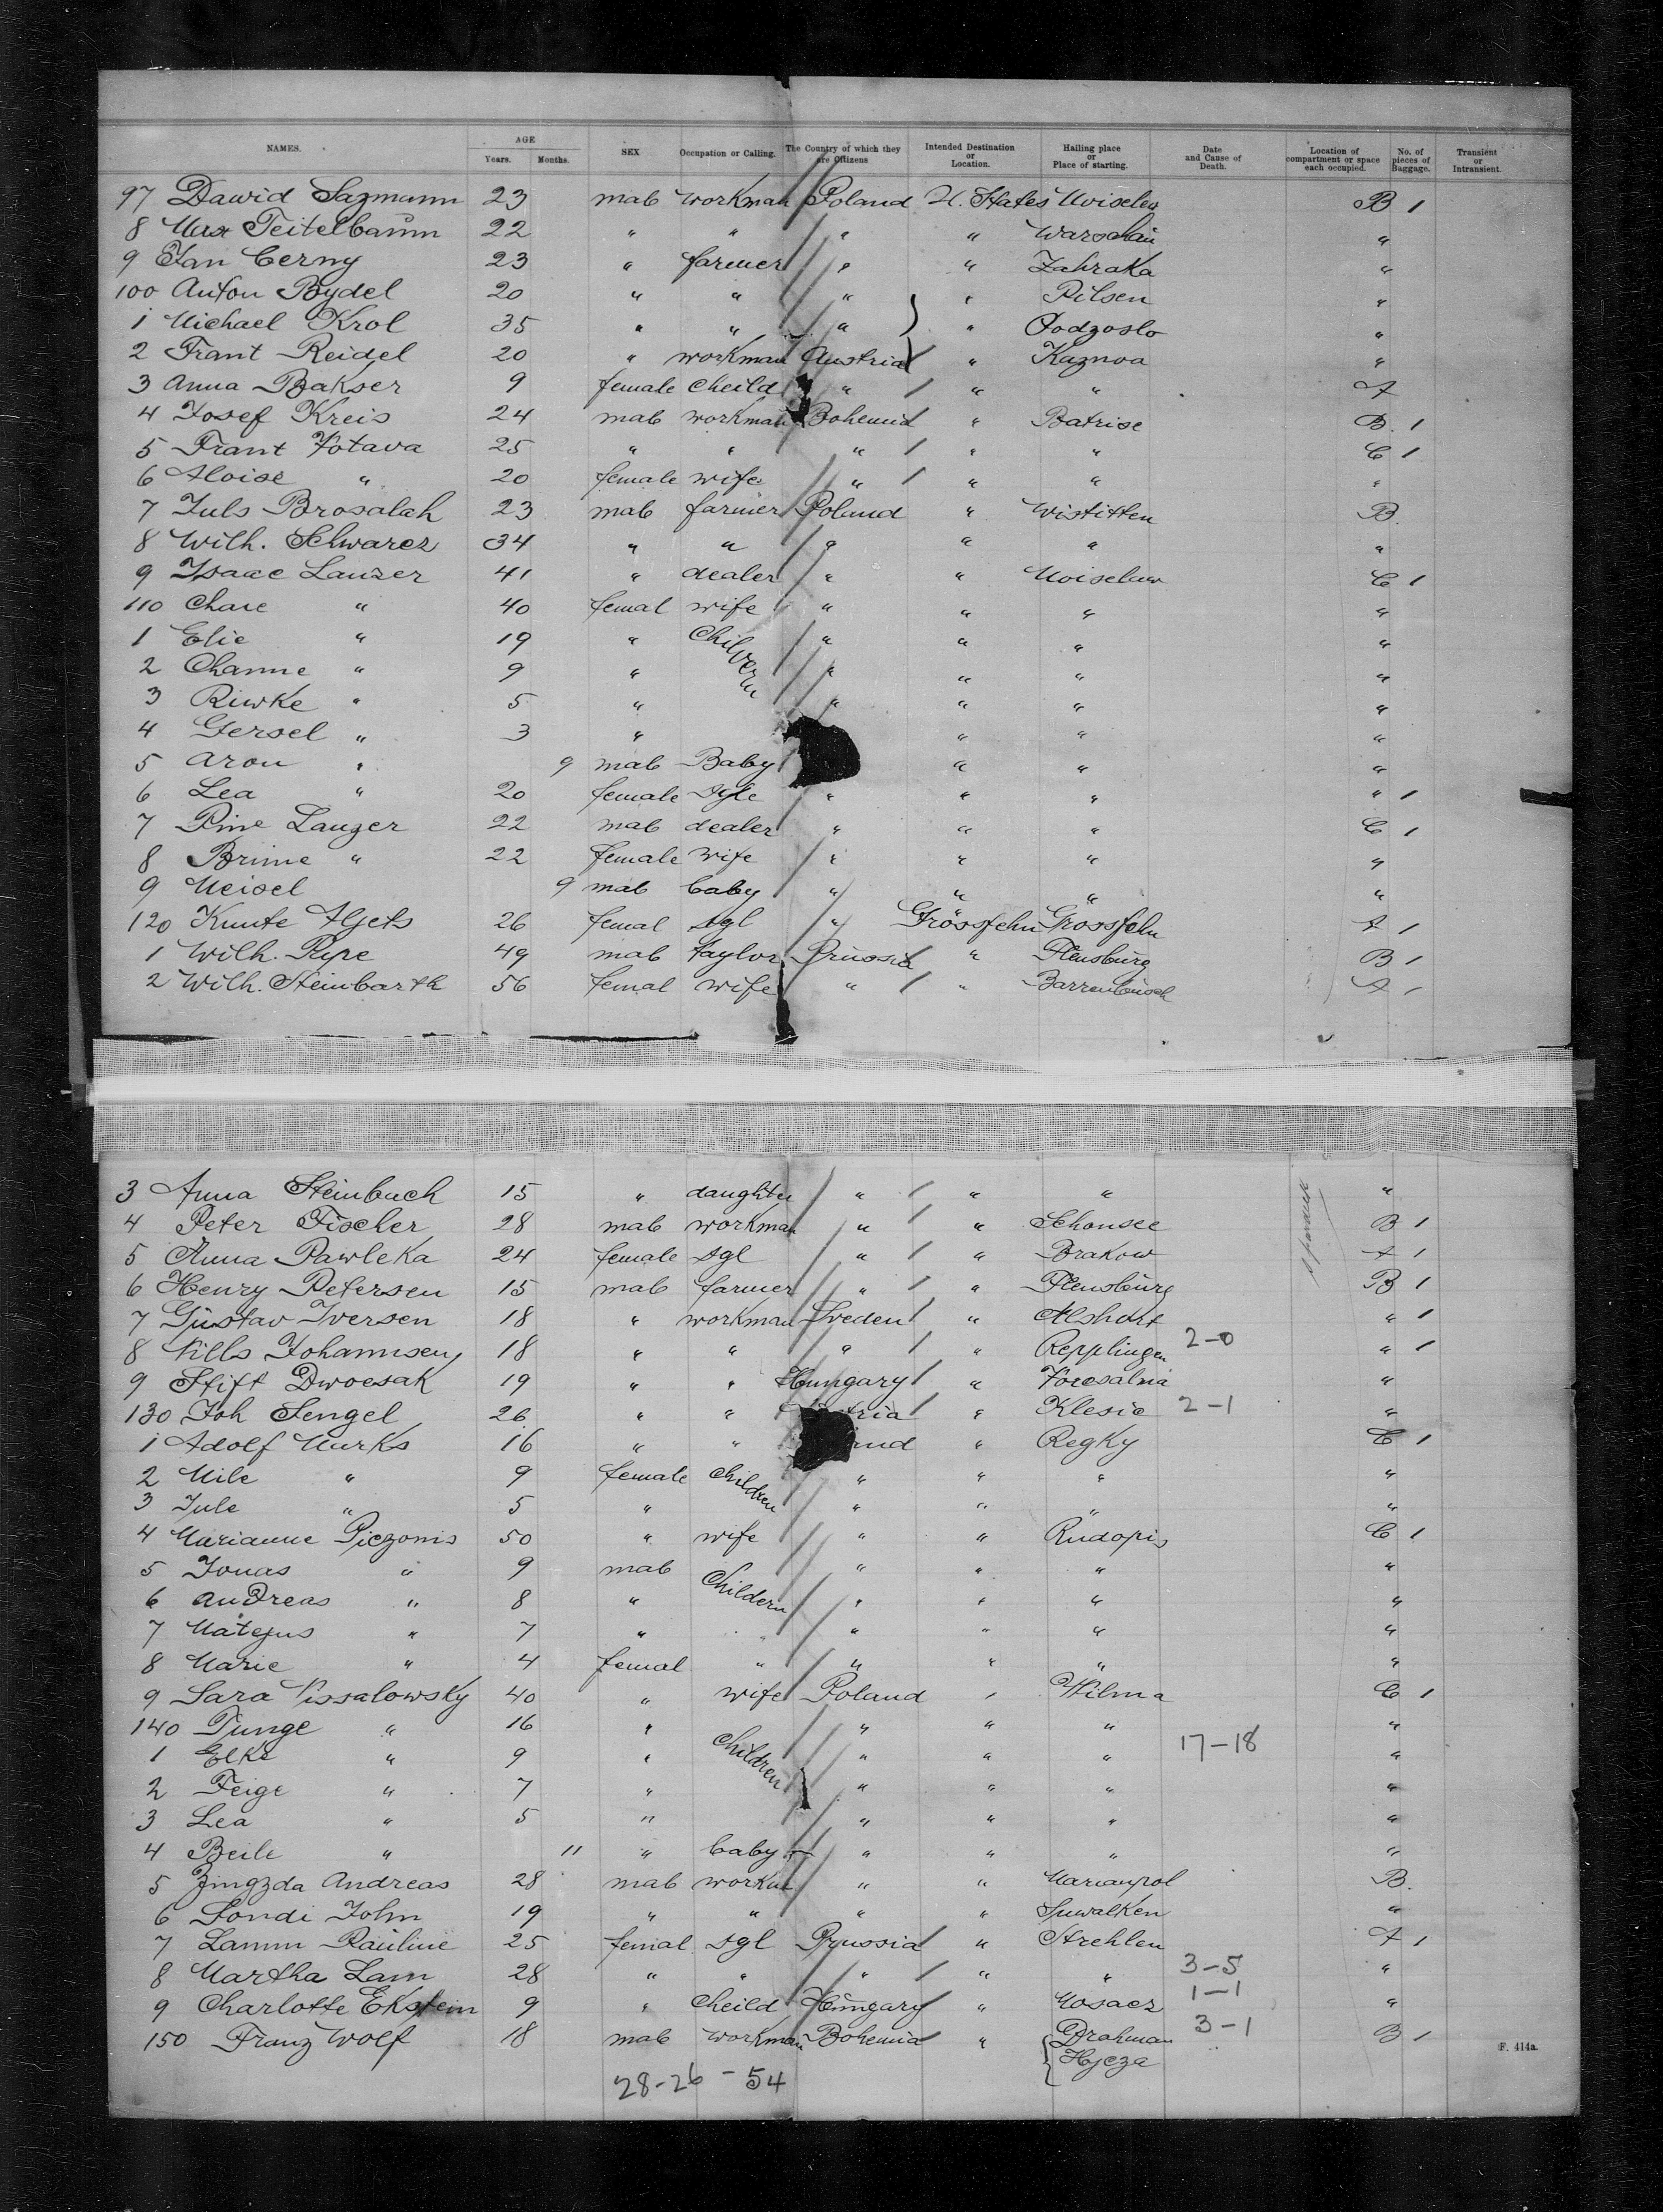 NAMES. AGE Years. Months. SEX Occupation or Calling. The Country of which they are Citizens Intended Destination or Location. Hailing place or Place of starting. Date and Cause of Death. Location of compartment or space each occupied. No. of pieces of Baggage. Transient or Intransient.
97 Dawid Sazmann 23 male workman Poland U. States B 1
8 Teitelbaum 22 " " " " Warschau "
9 Jan Cerny 23 " farmer " " Zahraka "
100 Anton Bydel 20 " " " " Pilsen "
1 Michael Krol 35 " " " " "
2 Frant Reidel 20 " workman Austria " Kaznoa "
3 Anna Bakser 9 female cheild " " " A
4 Josef Kreis 24 male workman Bohemia " Batrise B. 1
5 Frant Votava 25 " " " " " C 1
6 Aloise " 20 female wife " " " "
7 Juls Brosalah 23 male farmer Poland " Wistitten B.
8 Wilh. Schwarcz 34 " " " " " "
9 Isaac Lanzer 41 " dealer " " Moiselaw C 1
110 Chare " 40 femal wife " " " "
1 Elie " 19 " Children " " " "
2 Channe " 9 " " " " "
3 Riwke " 5 " " " " "
4 Gersel " 3 " " " "
5 Aron " 9 male Baby " " "
6 Lea " 20 female sgle " " " " 1
7 Pine Lanzer 22 male dealer " " " C 1
8 Brime " 22 female wife " " " "
9 Meisel 9 male baby " " " "
120 26 femal sgl " Grossfehn Grossfehn A 1
1 Wilh. Pipe 49 male taylor Prussia " Flensburg B 1
2 Wilh. Steinbarth 56 femal wife " " Barrenbusch A 1
3 Anna Steinbach 15 " daughter " " " "
4 Peter Fischer 28 male workman " " Schonsee B 1
5 Anna Pawleka 24 female sgl " " Brakow A 1
6 Henry Petersen 15 male farmer " " Flensburg B 1
7 Gustav Iversen 18 " workman Sveden " Alshult " 1
8 Nills Johannsen 18 " " " " Repplingen 2-0 " 1
9 Stift Dwoesak 19 " " Hungary " "
130 Joh Sengel 26 " " " Klesie 2-1 "
1 Adolf Murks 16 " " " Regky C 1
2 Mile " 9 female children " " " "
3 Jule " 5 " " " " "
4 Marianne Piczonis 50 " wife " " Rudopis C 1
5 Jonas " 9 male Childern " " " "
6 Andreas " 8 " " " " "
7 Matejus " 7 " " " " " "
8 Marie " 4 femal " " " " "
9 Sara Vissalowsky 40 " wife Poland " Wilma C 1
140 Dunge " 16 " Children " " " "
1 Elke " 9 " " " " 17-18 "
2 Feige " 7 " " " " "
3 Lea " 5 " " " " "
4 Beile " 11 " baby " " " "
5 Zingzda Andreas 28 male workm " " Marianpol B.
6 Sondi John 19 " " " " Suwalken "
7 Lamm Pauline 25 femal sgl Prussia " Strehlen A 1
8 Martha Lam 28 " " " " " 3-5 "
9 Charlotte Ekstein 9 " Cheild Hungary " Mosacz 1-1 "
150 Franz Wolf 18 male workman Bohemia " Drahman 3-1 B 1
Hycza
F. 414a.
28-26 - 54